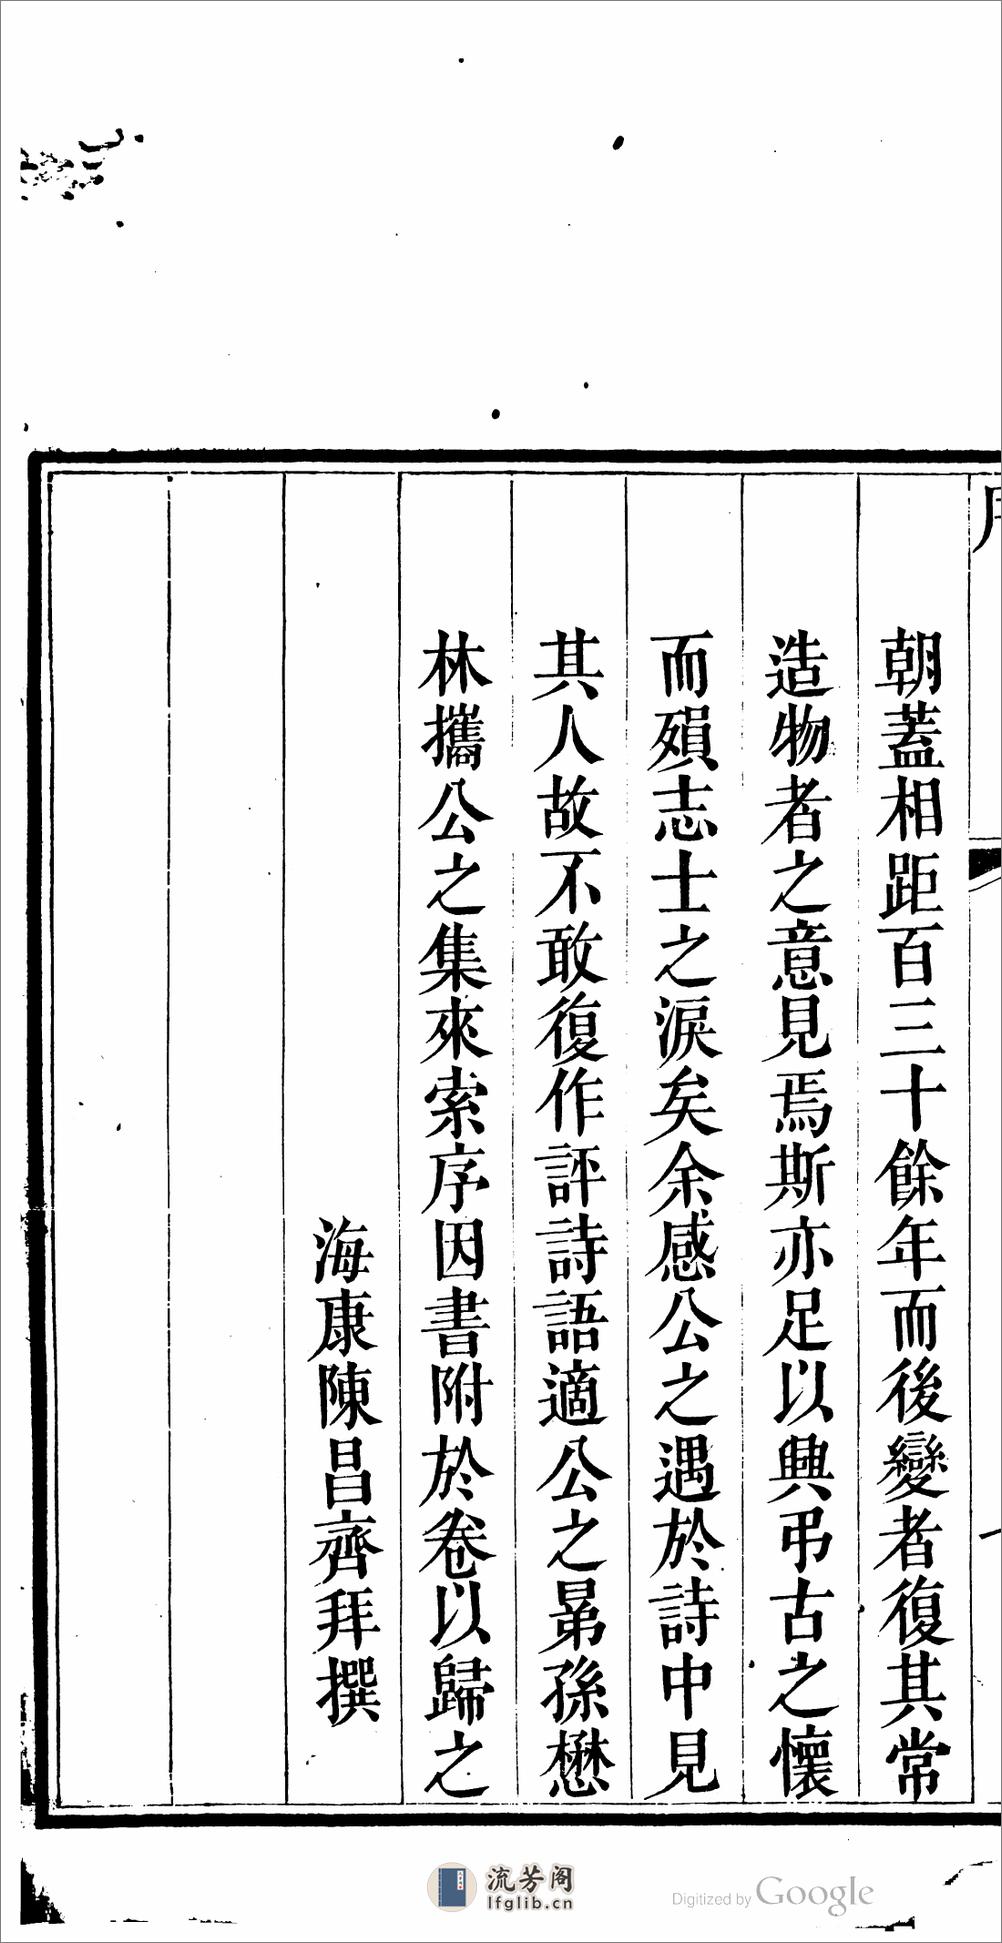 朝蓋相距百三十餘年而後變者復其常
造物者之意見焉斯亦足以興弔古之懷
而殞志士之淚矣余感公之遇於詩中見
其人故不敢復作評詩語適公之晜孫懋
林攜公之集來索序因書附於卷以歸之
海康陳昌齊拜撰
流芳阁
lfglib.cn
Digitized by Google